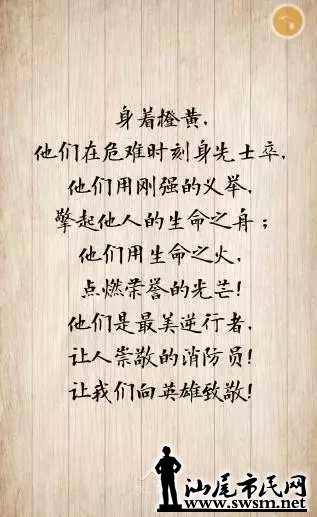 身着橙黄,
他们在危难时刻身先士卒,
他们用刚强的义举,
擎起他人的生命之舟;
他们用生命之火,
点燃荣誉的光芒!
他们是最美逆行者,
让人崇敬的消防员!
让我们向英雄致敬!
汕尾市民网
www.swsm.net